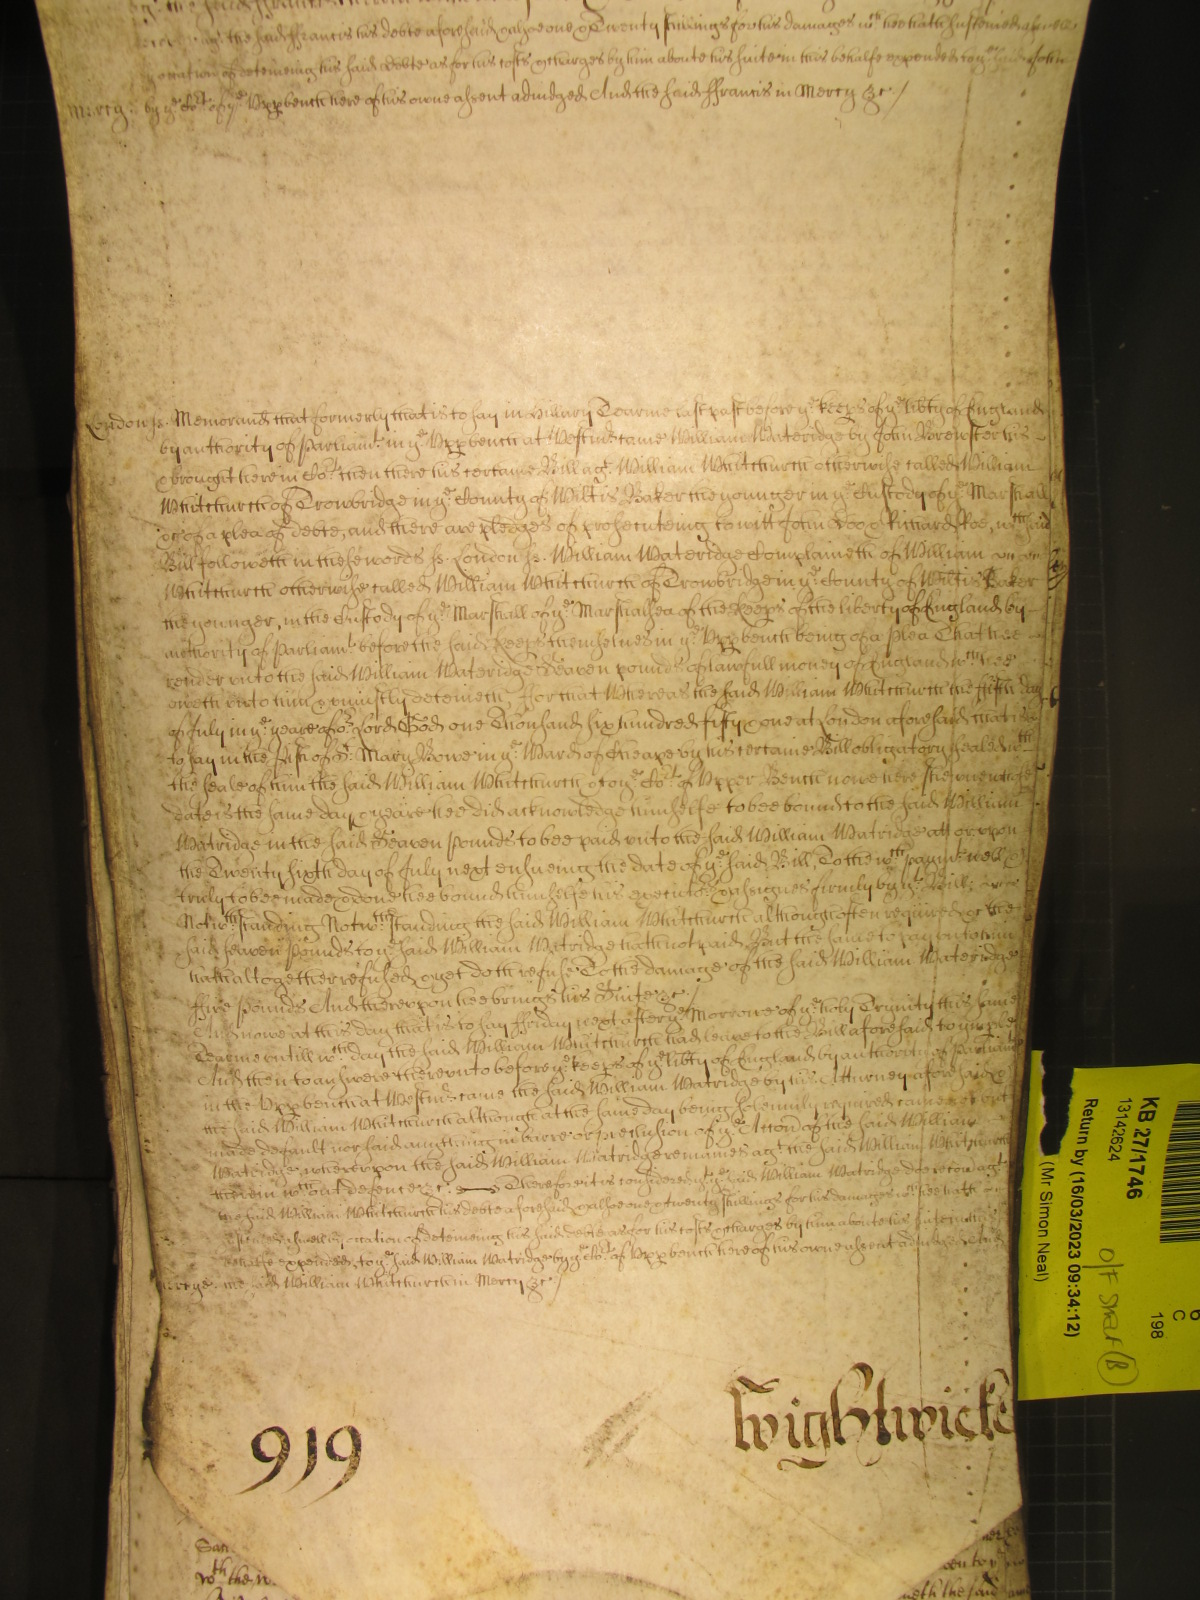 the said ffrancis his debte aforesaid & alsoe one & Twenty shillings for his damages wch hee hath susteined
occation of deteineing his said debte as for his costs & charges by him aboute his suite in this behalfe expended to ye said
Mercy. by ye Cort of ye Vpp bench here of his owne assent adiudged And the said ffrancis in Mercy &c /
London ss. Memorand that formerly that is to say in Hillary Tearme last past before ye keeps of ye libty of England
by authority of Parliamt. in ye Vpp bench at Westmr came William Wateridge by John Brewster his
& brought here in Cort then there his certaine Bill agt William Whitchurch otherwise called William
Whitchurch of Trowbridge in ye County of Wiltis Baker the younger in ye Custody of ye Marshall
&c of a plea of debte, and there are pledges of prosecuteing to witt John Doo & Richard Roe, wch said
Bill followeth in these words ss. London ss. William Wateridge Complaineth of William
Whitchurch otherwise called William Whitchurch of Trowbridge in ye County of Wiltis Baker
the younger, in the Custody of ye Marshall of ye Marshalsea of the Keeps of the liberty of England by
authority of Parliamt. before the said keeps themselves in ye Vpp bench being of a plea That hee
render vnto the said William Wateridge Seaven pounds of lawfull money of England wch hee
oweth vnto him & vniustly deteineth, for that Whereas the said William Whitchurch the fifth day
of July in ye yeare of or Lord God one Thousand six hundred fifty & one at London aforesaid that is
to say in the pish of St. Mary Bowe in ye Ward of Cheape by his certaine Bill obligatory sealed wth
the seale of him the said William Whitchurch & to ye Cort of Vpper Bench nowe here shewen whose
date is the same day & yeare hee did acknowledge himselfe to bee bound to the said William
Watridge in the said Seaven pounds to bee paid vnto the said William Watridge at or vpon
the Twenty sixth day of July next ensueing the date of ye said Bill, To the wch paymt. well &
truly to bee made & done hee bound himselfe his executors & assignes firmly by ye Bill:
Notwthstanding Notwthstanding the said William Whitchurch although often required &c the
said seaven pounds to ye said William Watridge hath not paid, But the same to pay vnto him
hath altogether refused & yet doth refuse To the damage of the said William Wateridge
ffive pounds And therevpon hee brings his Suite &c /
And nowe at this day that is to say ffriday next after ye Morrowe of ye holy Trynity this same
Tearme vntill wch day the said William Whitchurch had leave to the Bill aforesaid to imple
And then to answere therevnto before ye keeps of ye libty of England by authority of Parliamt
in the Vpp bench at Westmr came the said William Watridge by his Atturney aforesaid &
the said William Whitchurch although at the same day being solemnly required came not but
made default nor said any thing in barre or preclusion of ye Action of the said William
Watridge, wherevpon the said William Watridge remaines agt the said William Whitchurch
therein wthout defence &c. Therefore it is considered yt ye said William Watridge doe recou agt
the said William Whitchurch his debte aforesaid & alsoe one & twenty shillings for his damages wch hee hath
occation of deteineing his said debte as for his costs & charges by him aboute his suite in this
behalfe expended, to ye said William Watridge by ye Cort of Vpp bench here of his owne assent adiudged And
the said William Whitchurch in Mercy &c /
919
Wightwicke
Sai
wth the
KB 27/1746
13142624
Return by (16/03/2023 09:34:12)
(Mr Simon Neal)
C
198